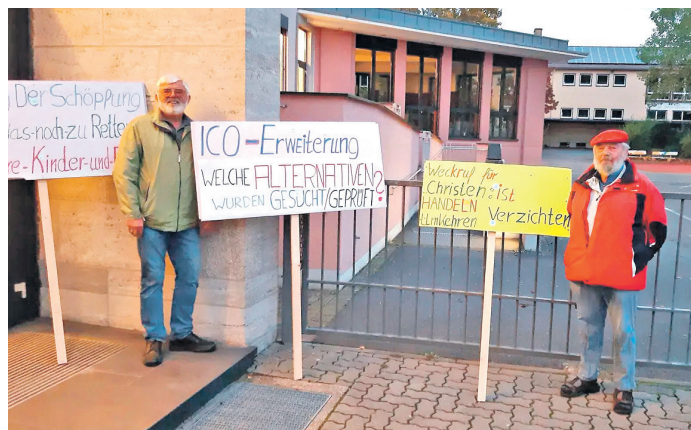 Der Schöpfung
Was-noch-zu Rette
Kinder-und
ICO-Erweiterung
WELCHE ALTERNATIVEN?
WURDEN GESUCHT/GEPRÜFT
Weckruf für
Christen: Ist
HANDELN Verzichten